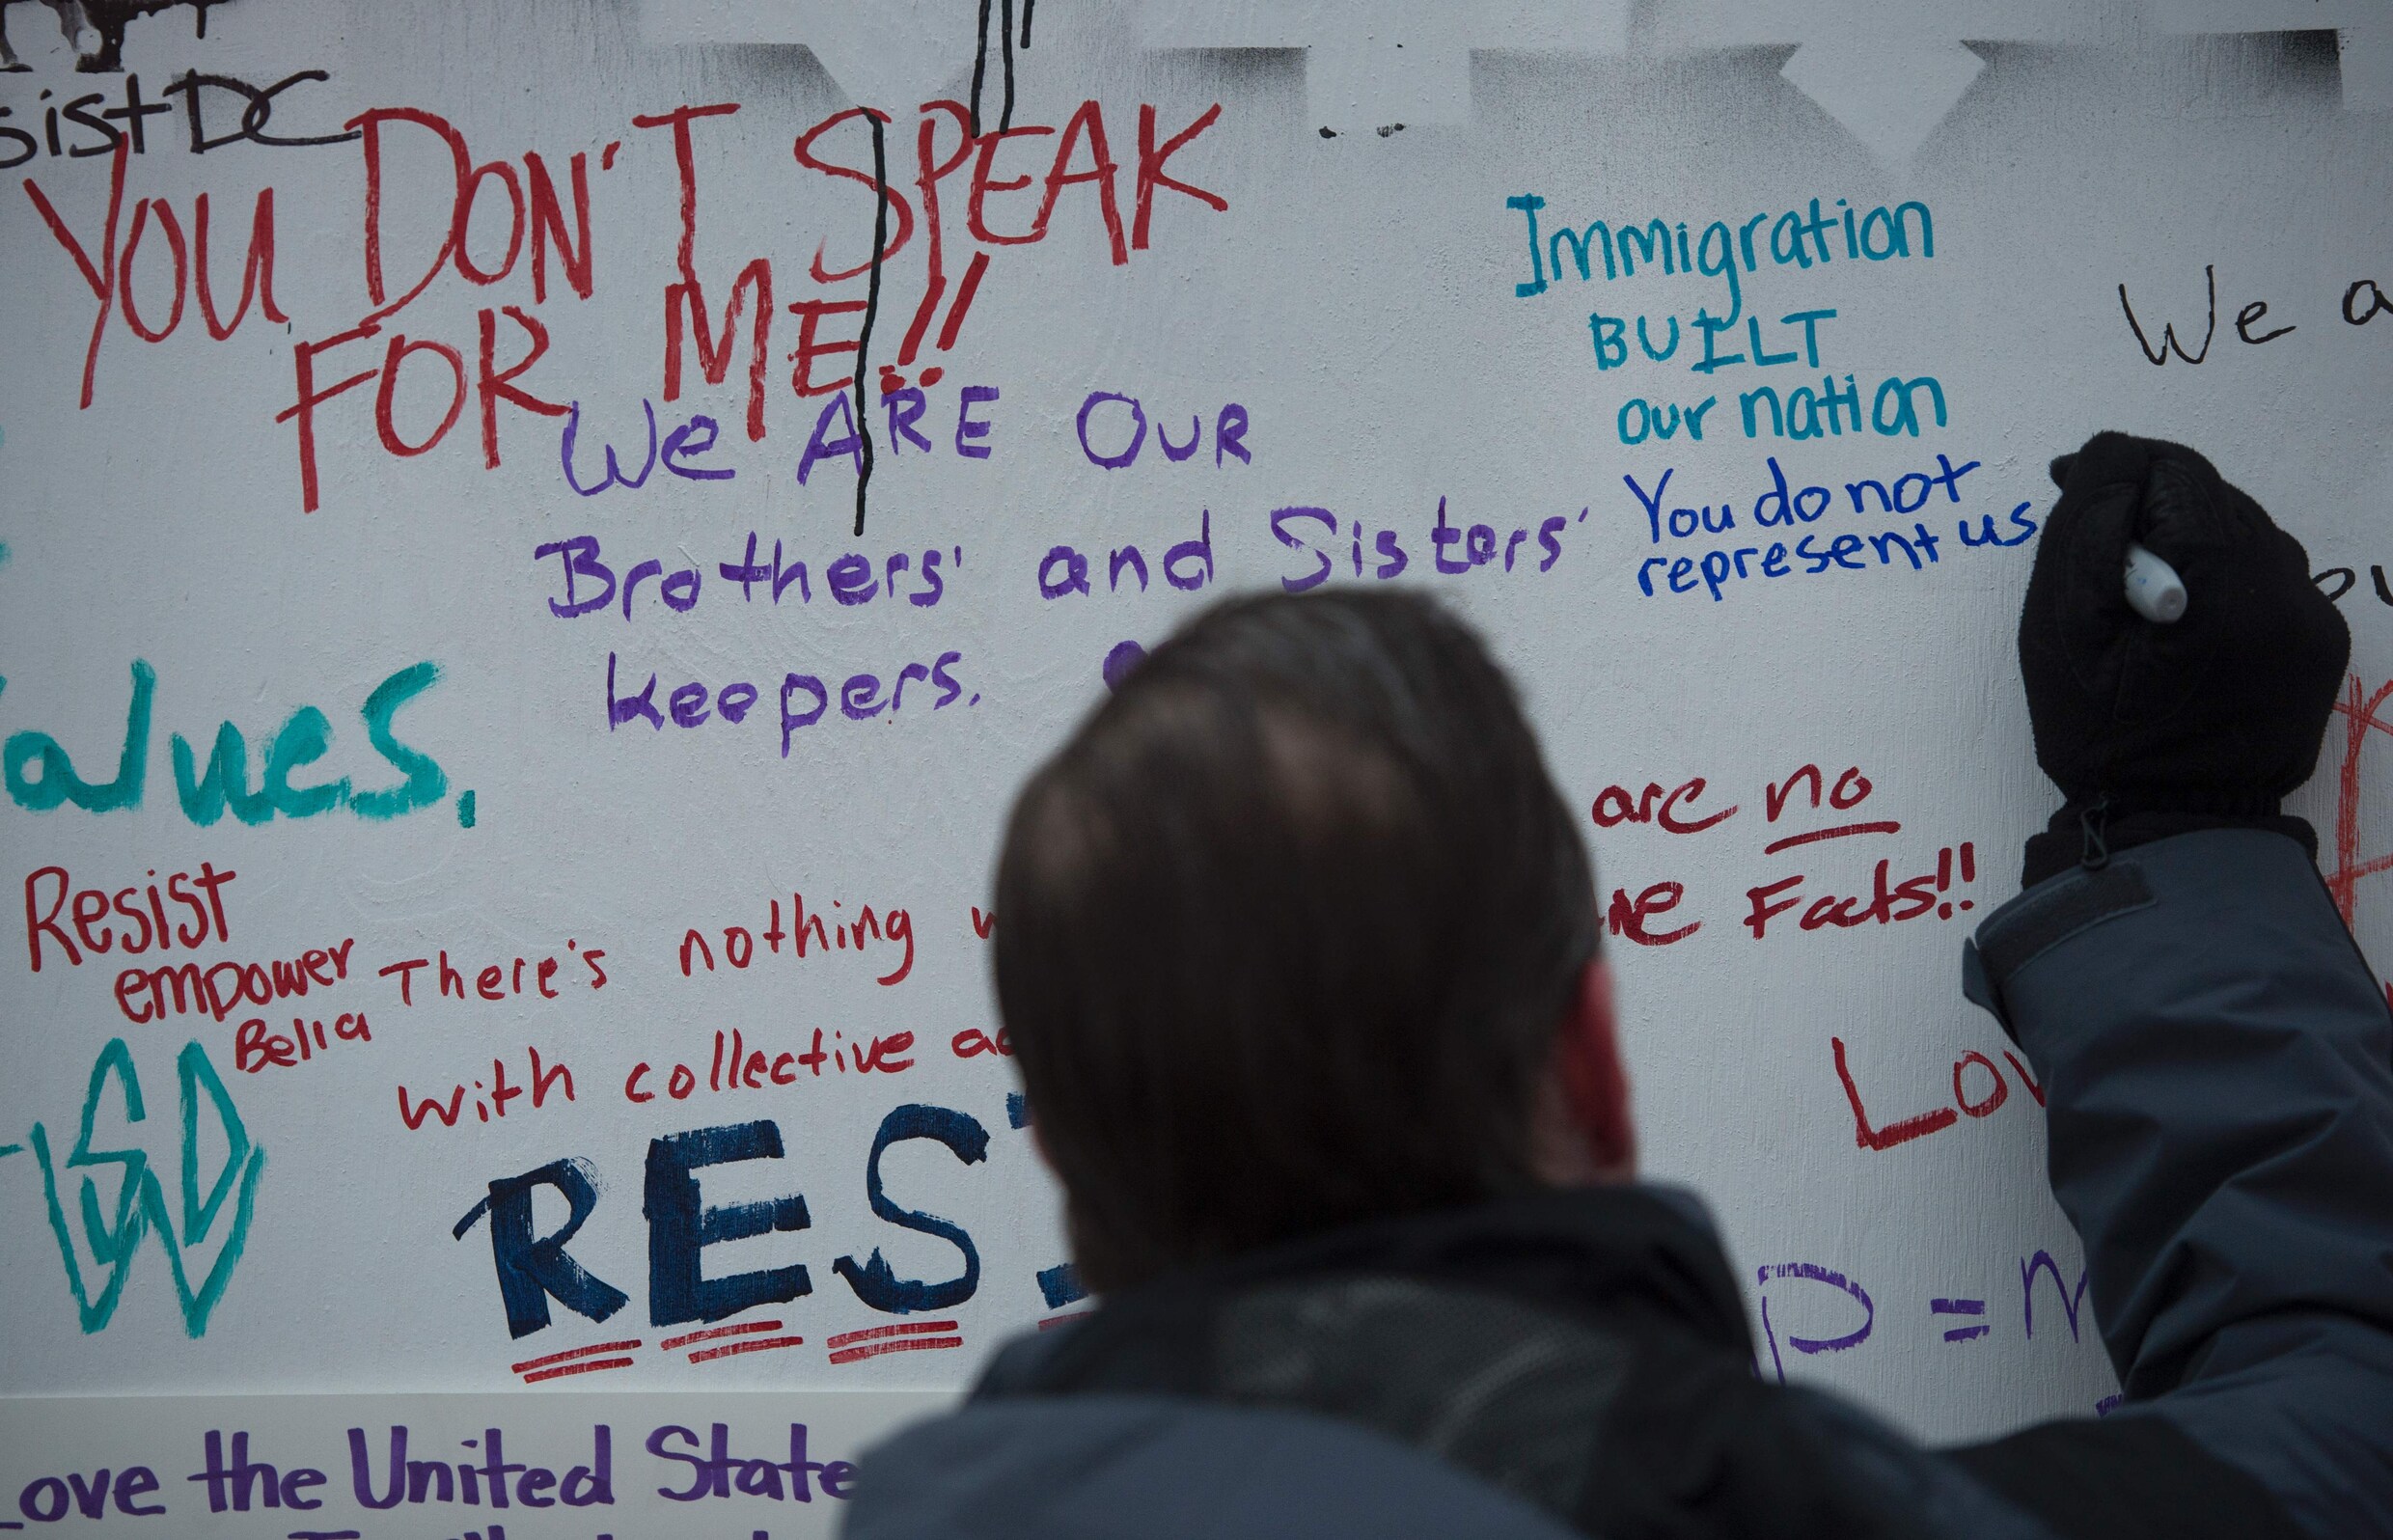 sistDC
YOU DON'T SPEAK
FOR ME!!
We ARE OUR
Brothers' and Sisters'
keepers.
Immigration
BUILT
our nation
You do not
represent us
We a
alues.
are no
Facts!!
Resist
empower
Bella
There's nothing
with collective
RES
Lov
P =
ove the United State